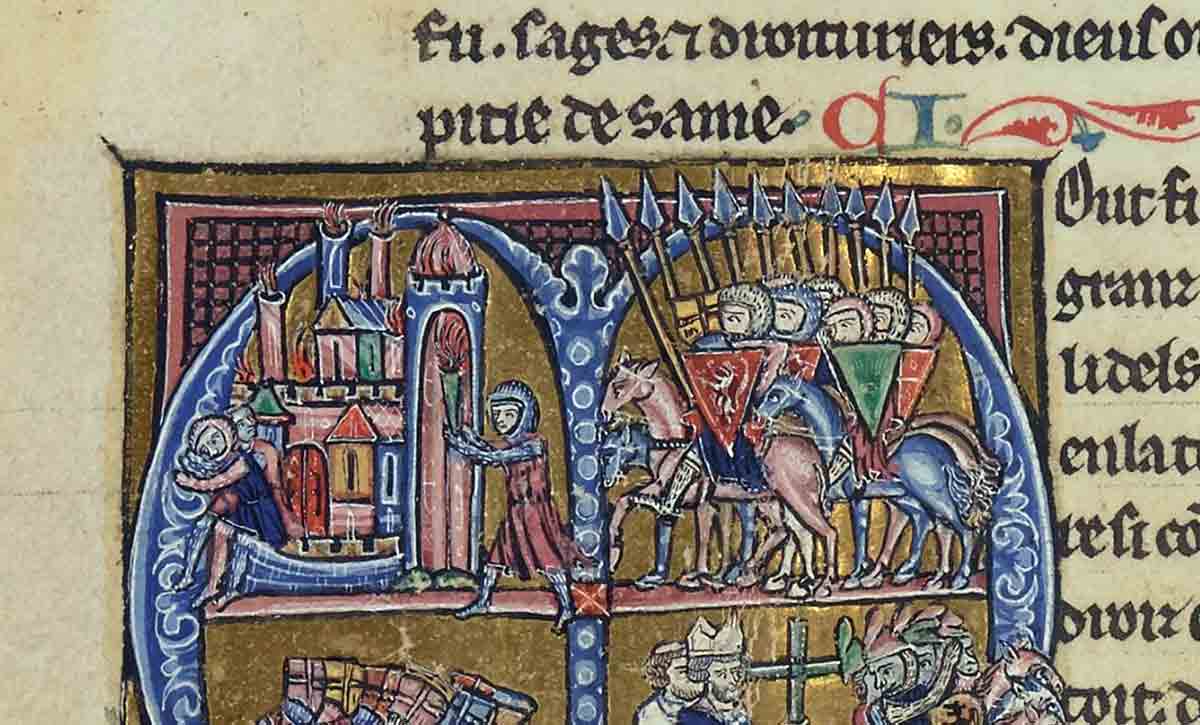 fu. sages. ⁊ droituriers. dieus o
pitie de same.
Out fu
granz
li dels
enlat
te si co
droiz
toit. d